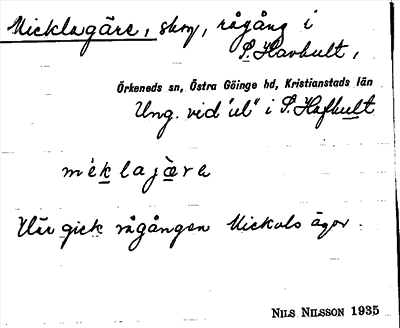 Micklagäre, skog, rågång i
S. Havhult,
Örkeneds sn, Östra Göinge hd, Kristianstads län
Ung. vid "ul" i S. Hafhult
meklajæra
Här gick rågången Mickols ägor.
NILS NILSSON 1935